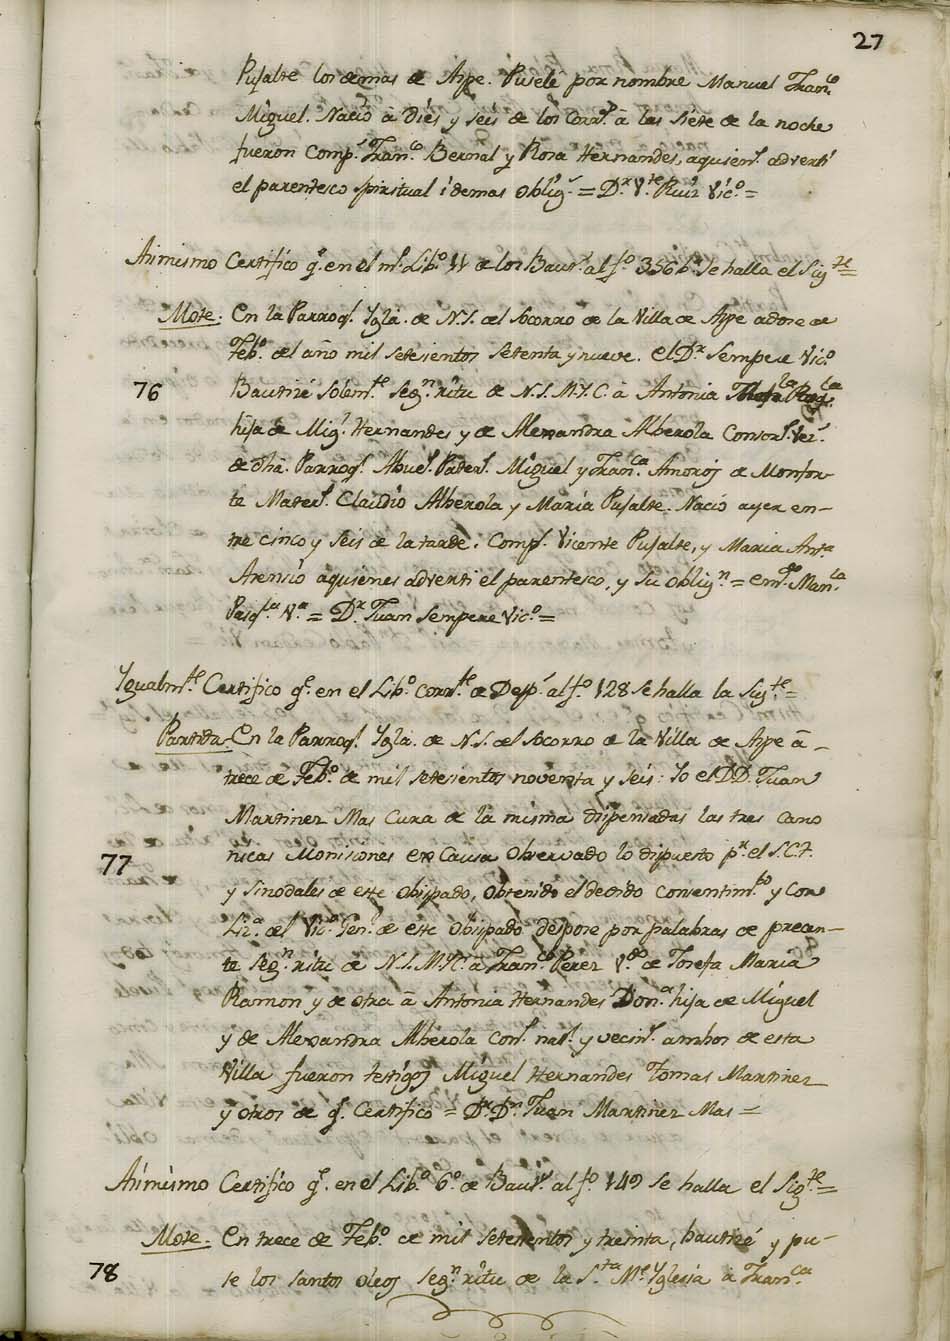 27
Pujalte los demas de Aspe. Pusele por nombre Manuel Franco
Miguel. Nació â diés y seis de los Corrs. â las siete de la noche
fueron Comps. Franco Bernal y Rosa Hernandes, aquiens. advertí
el parentesco spiritual i demas oblig.s = Dr. Vte. Ruiz Vic.o =
Asimismo Certifico q.e en el m.o Lib.o 11 de los Baut.s al f.o 356 b.ta se halla el Sig.te =
Mote. En la Parroq.l Ygla. de N.S. del Socorro de la Villa de Aspe a dose de
Feb.o del año mil setesientos setenta y nueve. el D.r Sempere Vic.o
76
Bautizé solem.te seg.n ritu de N.S.M.Y.C. â Antonia
hija de Mig.l Hernandes y de Alexandra Alberola Consor.s Vez.s
de dha. Parroq.l Abue.s Pater.s Miguel y Fran.ca Amoros de Monfor-
te Mater.s Claudio Alberola y María Pujalte. Nació ayer en-
tre cinco y seis de la tarde. Comp.s Vicente Pujalte, y Maria Ant.a
Asensio aquienes advertí el parentesco, y su oblig.n = em.do Man.la
Pasq.la V.a = D.r Juan Sempere Vic.o =
Ygualm.te Certifico q.e en el Lib.o Corr.te de Desp.s al f.o 128 se halla la Sig.te =
Partida. En la Parroq.l Ygla. de N.S. del Socorro de la Villa de Aspe â -
trece de Feb.o de mil setesientos noventa y seis: Yo el D.D. Juan
Martinez Mas Cura de la misma dispensadas las tres cano
77
nicas Monisiones ex Causa Observado lo dispuesto p.r el S.C.T.
y sinodales de este Obispado, obtenido el devido consentim.to y con
Liz.a del Vic.o Gen.l de este Obispado despose por palabras de presen-
te seg.n ritu de N.S.M.Y. â Fran.co Perez V.do de Josefa Maria
Ramon y de otra â Antonia Hernandes Don.a hija de Miguel
y de Alexandra Alberola Con.s nat.s y vecin.s ambos de esta
Villa fueron testigos Miguel Hernandes Tomas Martinez
y otros de q.e Certifico = D.r D.n Juan Martinez Mas =
Asimismo Certifico q.e en el Lib.o 6.o de Baut.s al f.o 149 se halla el Sig.te =
Mote. En trece de Feb.o de mil setesientos y treinta, bautizé y pu-
78
se los santos oleos seg.n ritu de la S.ta M.e Yglesia â Fran.ca